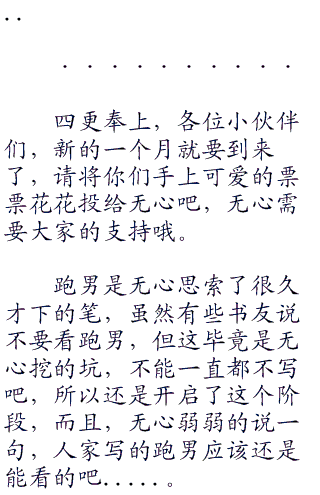 ..
..........
四更奉上，各位小伙伴
们，新的一个月就要到来
了，请将你们手上可爱的票
票花花投给无心吧，无心需
要大家的支持哦。
跑男是无心思索了很久
才下的笔，虽然有些书友说
不要看跑男，但这毕竟是无
心挖的坑，不能一直都不写
吧，所以还是开启了这个阶
段，而且，无心弱弱的说一
句，人家写的跑男应该还是
能看的吧.....。